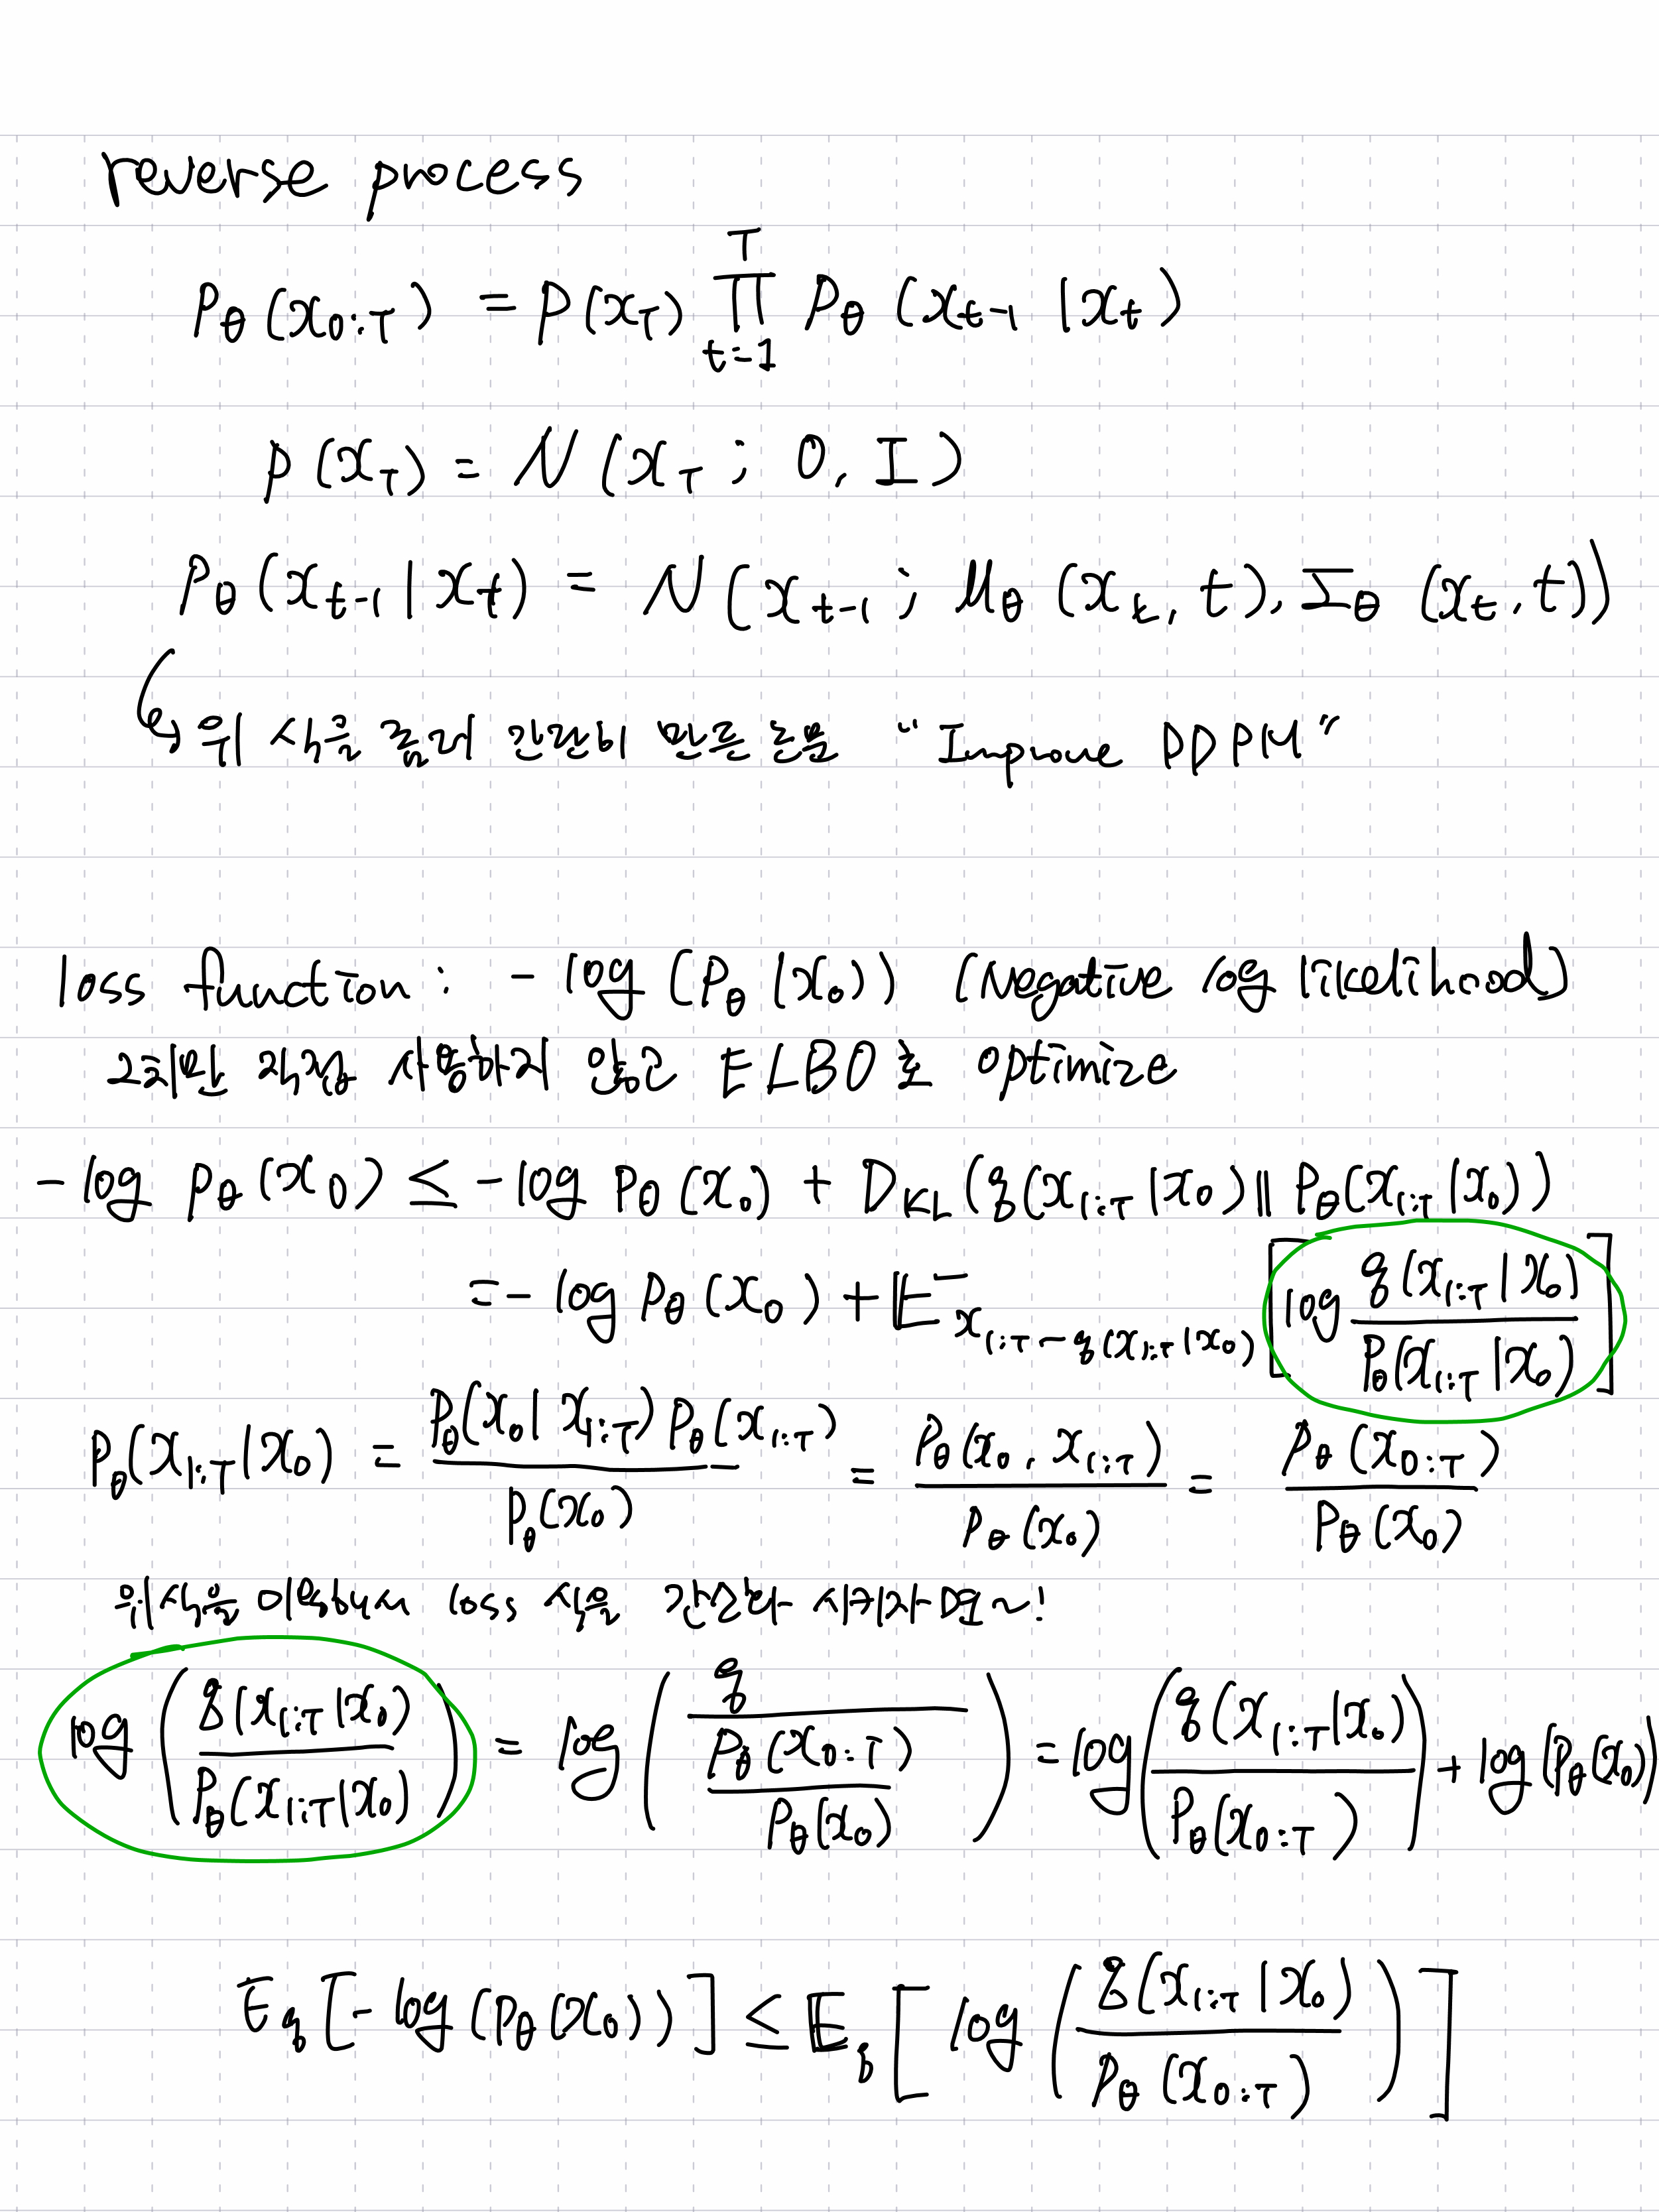 reverse process
P_θ(x_{0:T}) = p(x_T) ∏_{t=1}^{T} P_θ(x_{t-1} | x_t)
p(x_T) = N(x_T ; 0, I)
P_θ(x_{t-1} | x_t) = N(x_{t-1} ; μ_θ(x_t, t), Σ_θ(x_t, t))
↳ 위 식을 좀 더 간단히 만든 논문 "Improve DDPM"
loss function : - log (P_θ(x_0)) (Negative log likelihood)
그치만 직접 사용하지 않고 ELBO로 optimize
- log p_θ(x_0) ≤ - log P_θ(x_0) + D_{KL}(q(x_{1:T} | x_0) || P_θ(x_{1:T} | x_0))
= - log P_θ(x_0) + E_{x_{1:T} ~ q(x_{1:T} | x_0)} [log \frac{q(x_{1:T} | x_0)}{P_θ(x_{1:T} | x_0)}]
P_θ(x_{1:T} | x_0) = \frac{P_θ(x_0 | x_{1:T}) P_θ(x_{1:T})}{P_θ(x_0)} = \frac{P_θ(x_0, x_{1:T})}{P_θ(x_0)} = \frac{P_θ(x_{0:T})}{P_θ(x_0)}
위 식을 이용해서 loss 식을 간소화 시키자면~!
log (\frac{q(x_{1:T} | x_0)}{P_θ(x_{1:T} | x_0)}) = log (\frac{q}{\frac{P_θ(x_{0:T})}{P_θ(x_0)}}) = log (\frac{q(x_{1:T} | x_0)}{P_θ(x_{0:T})}) + log (P_θ(x_0))
E_q [- log (P_θ(x_0))] ≤ E_q [log (\frac{q(x_{1:T} | x_0)}{P_θ(x_{0:T})})]